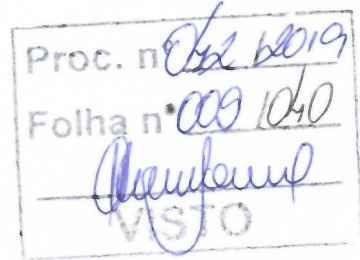 Proc. nº 042 /2019
Folha nº 009 /040
VISTO